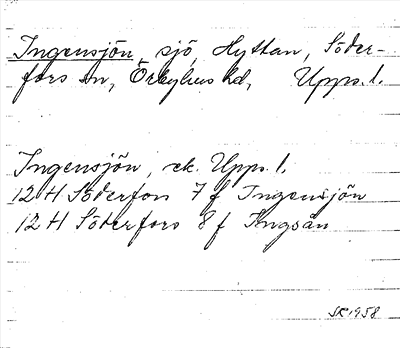 Ingensjön, sjö, Hyttan, Söder-
fors sn, Örbyhus hd, Upps. l.
Ingensjön, ek. Upps. l.
12 H Söderfors 7 f Ingensjön
12 H Söderfors 8 f Ingsån
SR 1958